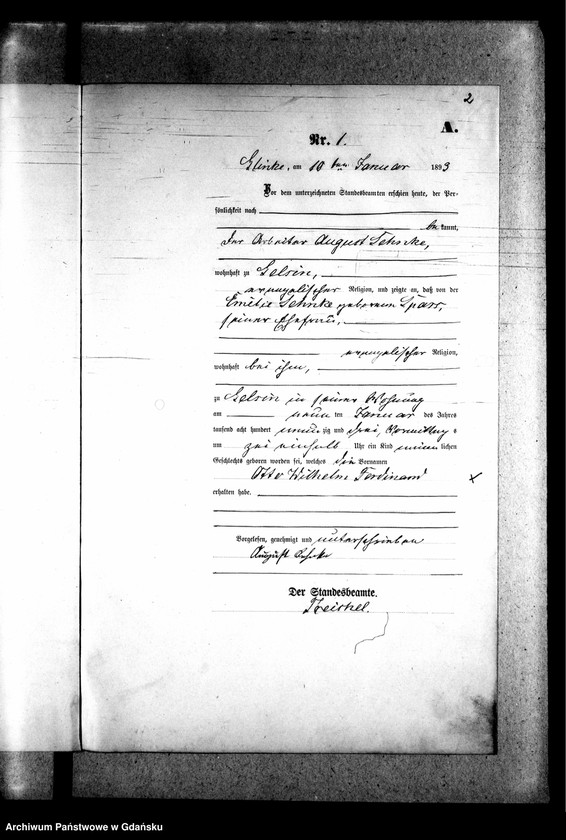 2
A.
Nr. 1.
Glinke, am 10ten Januar 1893
Vor dem unterzeichneten Standesbeamten erschien heute, der Per-
sönlichkeit nach
bekannt,
der Arbeiter August
wohnhaft zu Gelsin,
evangelischer Religion, und zeigte an, daß von der
Emilie geborenen Sparr,
seiner Ehefrau,
evangelischer Religion,
wohnhaft bei ihm,
zu Gelsin in seiner Wohnung
am neunten Januar des Jahres
tausend acht hundert neunzig und drei, Vormittag s
um einhalb Uhr ein Kind männlichen
Geschlechts geboren worden sei, welches die Vornamen
Otto Wilhelm Ferdinand
erhalten habe.
Vorgelesen, genehmigt und unterschrieben
August
Der Standesbeamte.
Treichel.
Archiwum Państwowe w Gdańsku